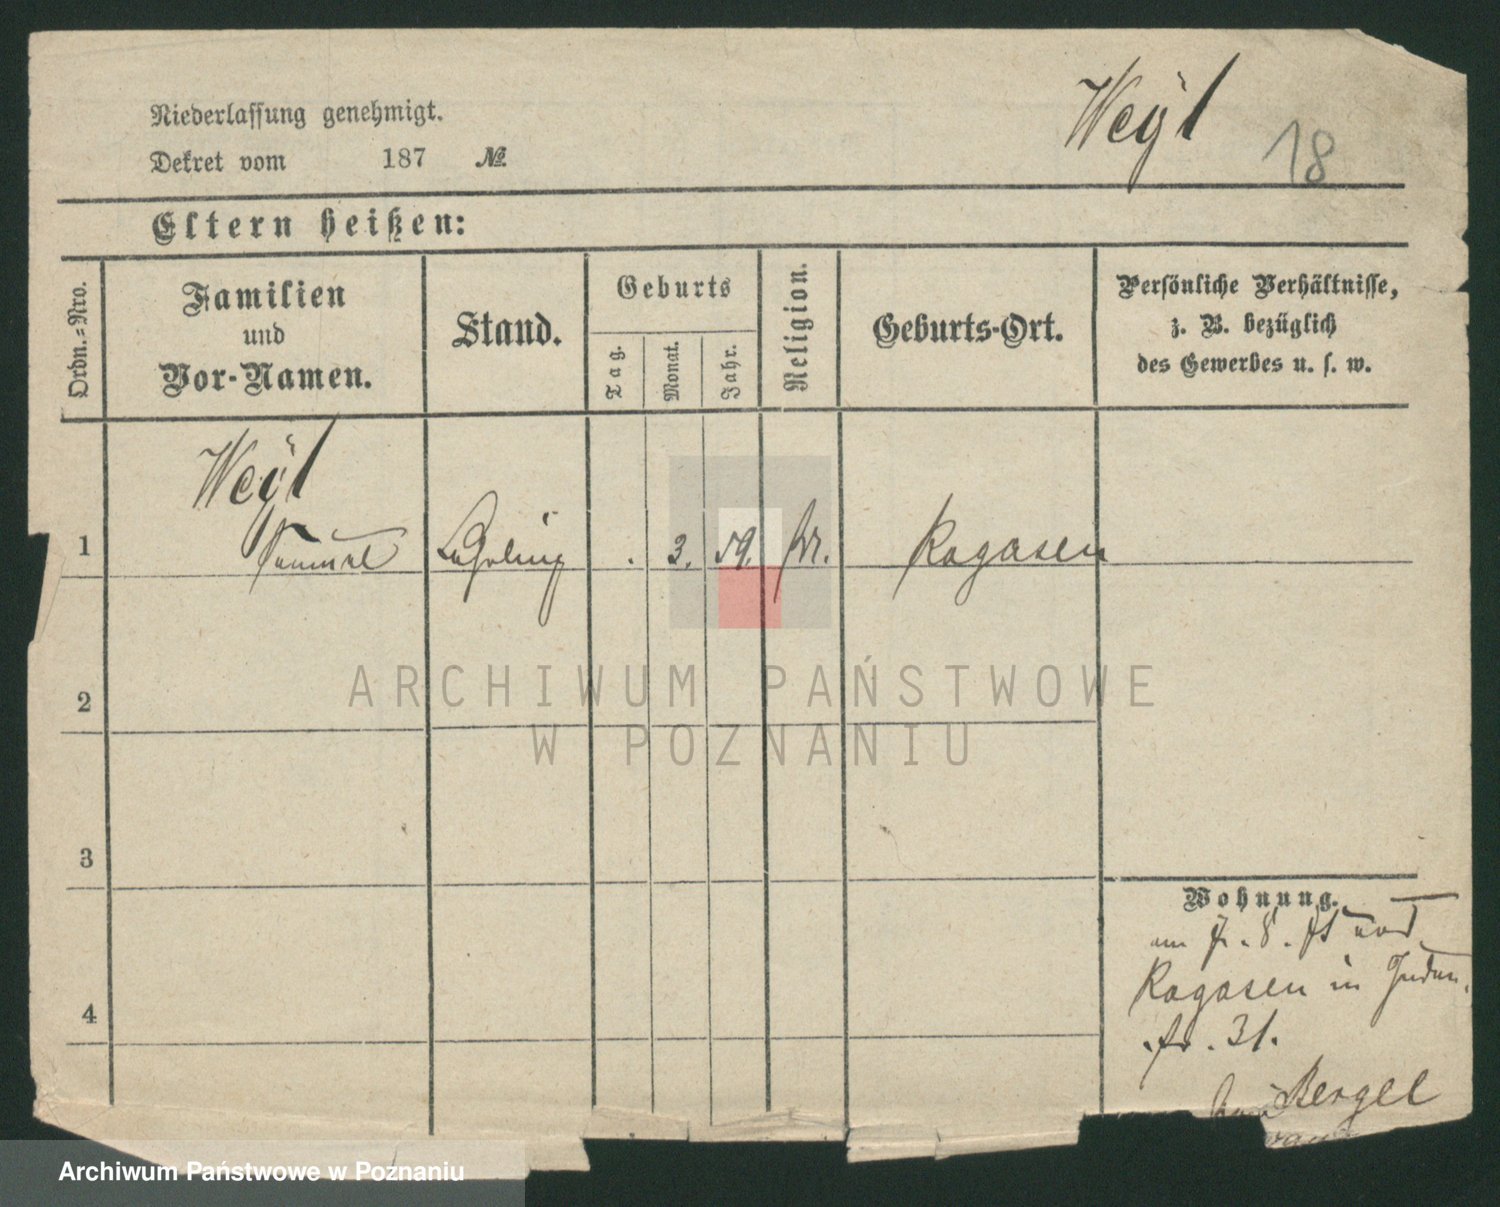 Weÿl
18
Niederlassung genehmigt.
Dekret vom 187 №.
Eltern heißen:
Ordn.-Nro.
Familien
und
Vor-Namen.
Stand.
Geburts
Tag.
Monat.
Jahr.
Religion.
Geburts-Ort.
Persönliche Verhältnisse,
z. B. bezüglich
des Gewerbes u. s. w.
Weÿl
1 Samuel . 3. 59. Rogasen
2
3
4
Wohnung.
am 7. 8.
Rogasen in Juden-
str. 31.
Bergel
ARCHIWUM PAŃSTWOWE
W POZNANIU
Archiwum Państwowe w Poznaniu